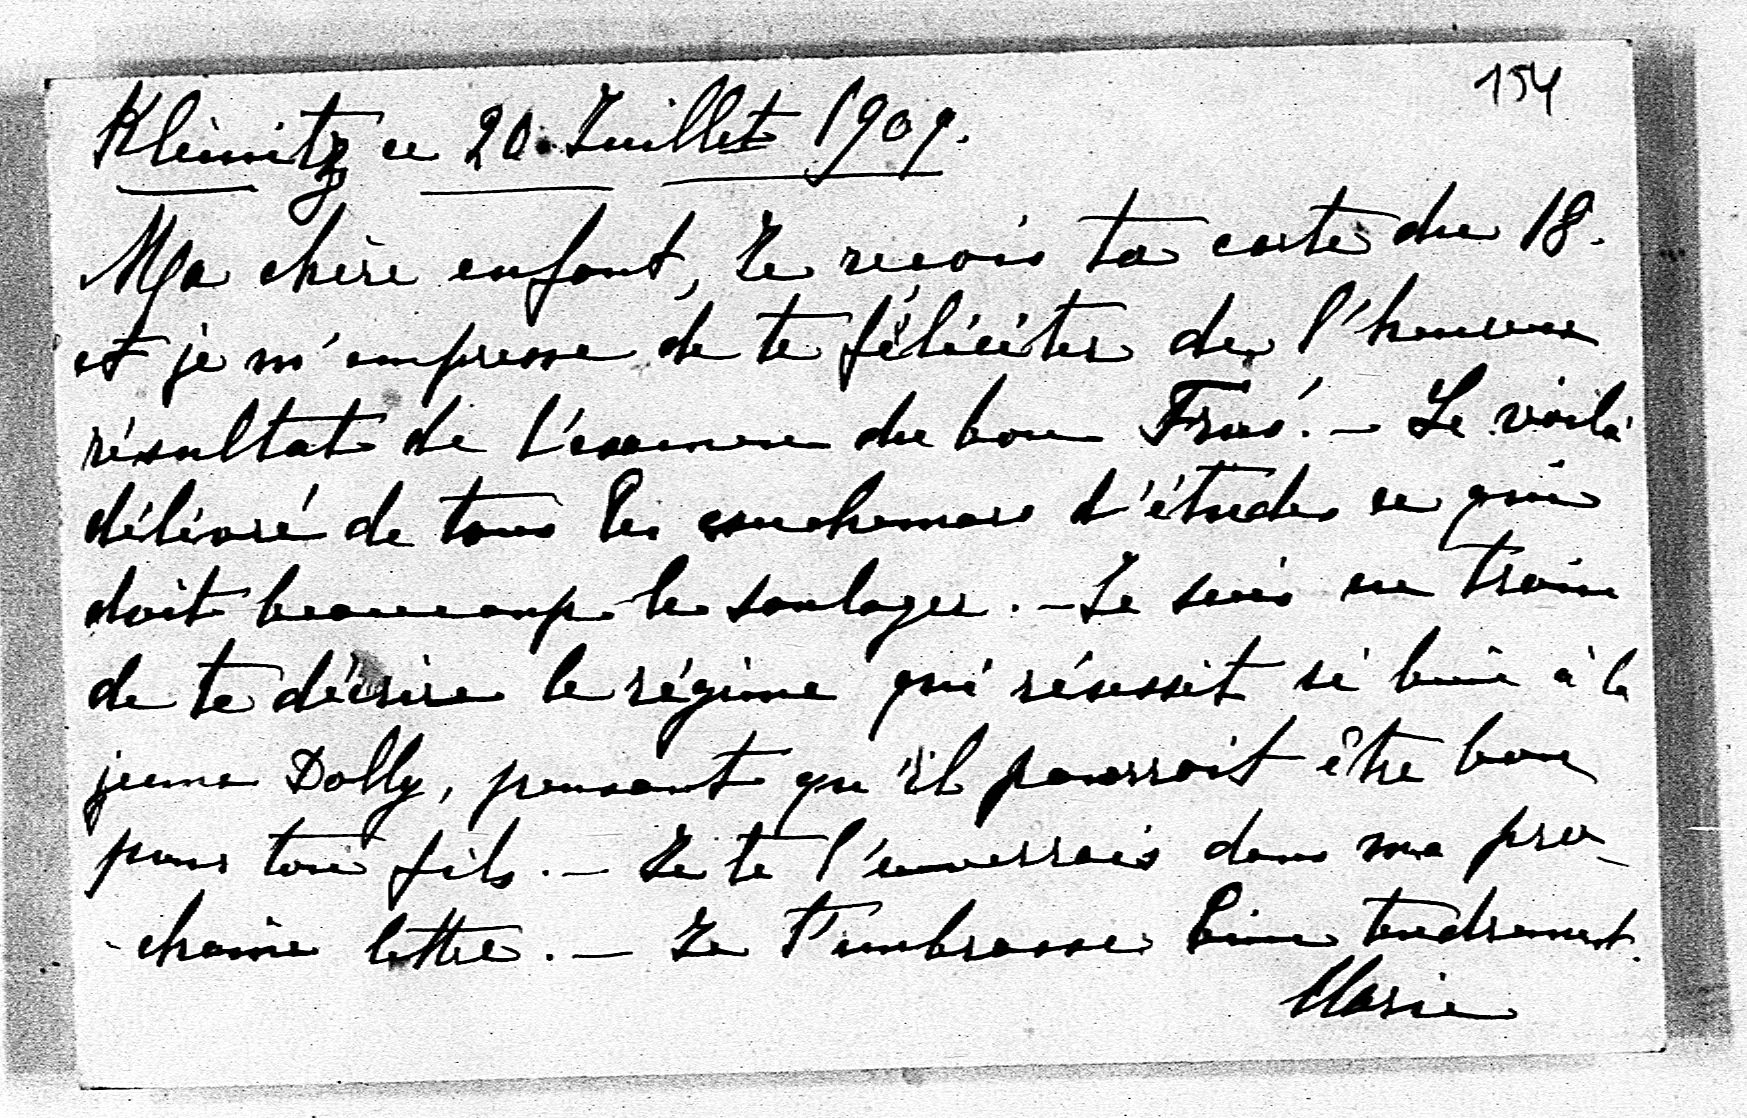 154
Kleinitz ce 20. Juillet 1909.
Ma chère enfant, Je reçois ta carte du 18.
et je m'empresse de te féliciter de l'heureux
résultat de l'examen du bon . - Le voilà
délivré de tous les cauchemars d'études ce qui
doit beaucoup le soulager. - Je suis en train
de te décrire le régime qui réussit si bien à la
jeune Dolly, pensant qu'il pourrait être bon
pour ton fils. - Je te l'enverrais dans ma pro-
-chaine lettre. - Je t'embrasse bien tendrement.
Marie